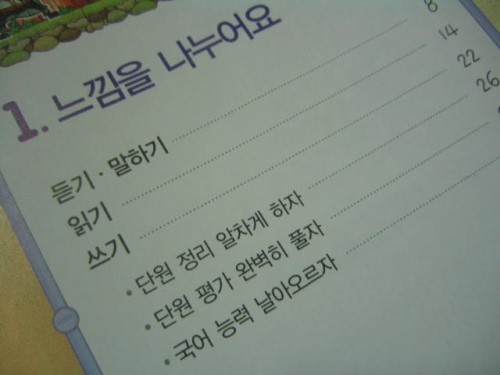 1. 느낌을 나누어요
듣기 · 말하기 8
읽기 14
쓰기 22
• 단원 정리 알차게 하자 26
• 단원 평가 완벽히 풀자
• 국어 능력 날아오르자